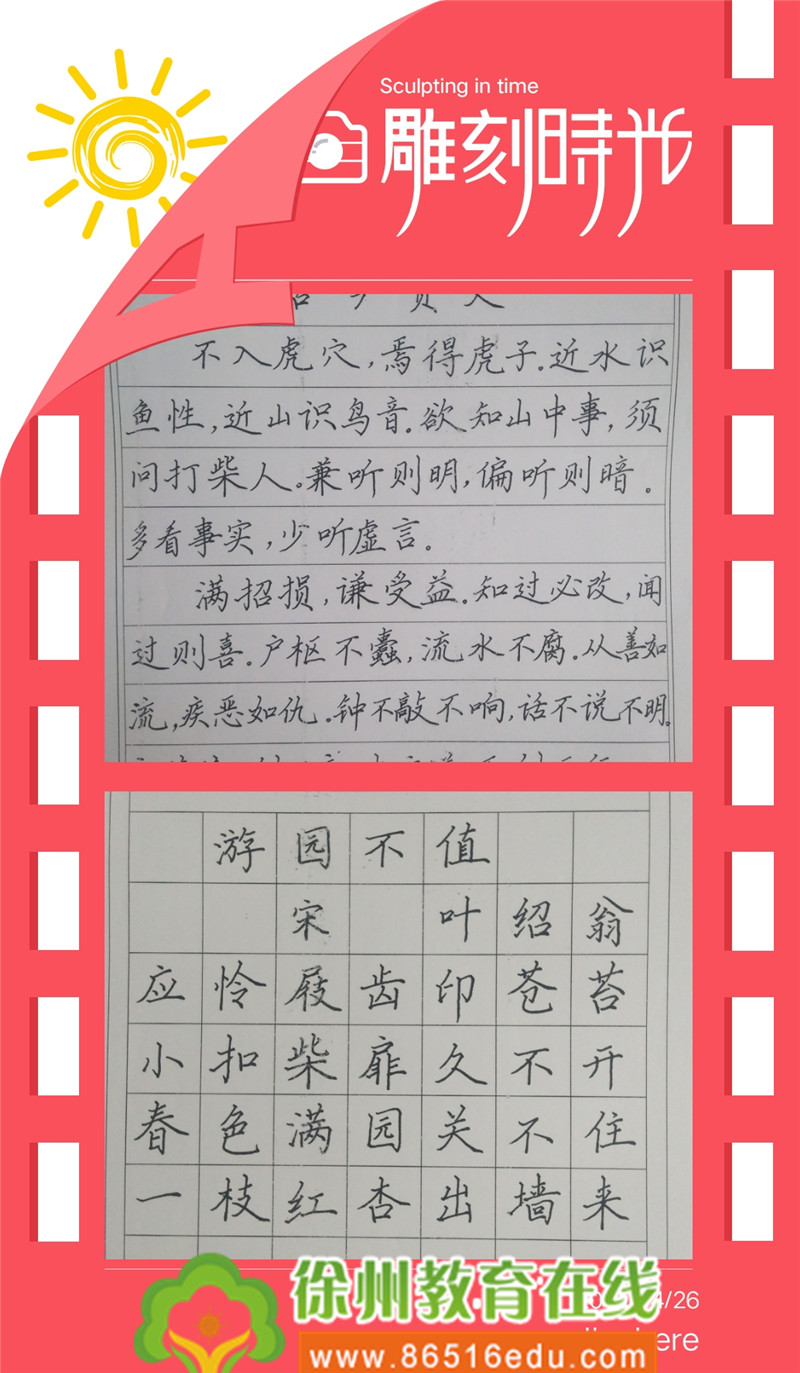 Sculpting in time
雕刻時光
不入虎穴，焉得虎子。近水识
鱼性，近山识鸟音。欲知山中事，须
问打柴人。兼听则明，偏听则暗。
多看事实，少听虚言。
满招损，谦受益。知过必改，闻
过则喜。户枢不蠹，流水不腐。从善如
流，疾恶如仇。钟不敲不响，话不说不明。
游园不值
宋 叶绍翁
应怜屐齿印苍苔
小扣柴扉久不开
春色满园关不住
一枝红杏出墙来
徐州教育在线
/26
www.86516edu.com